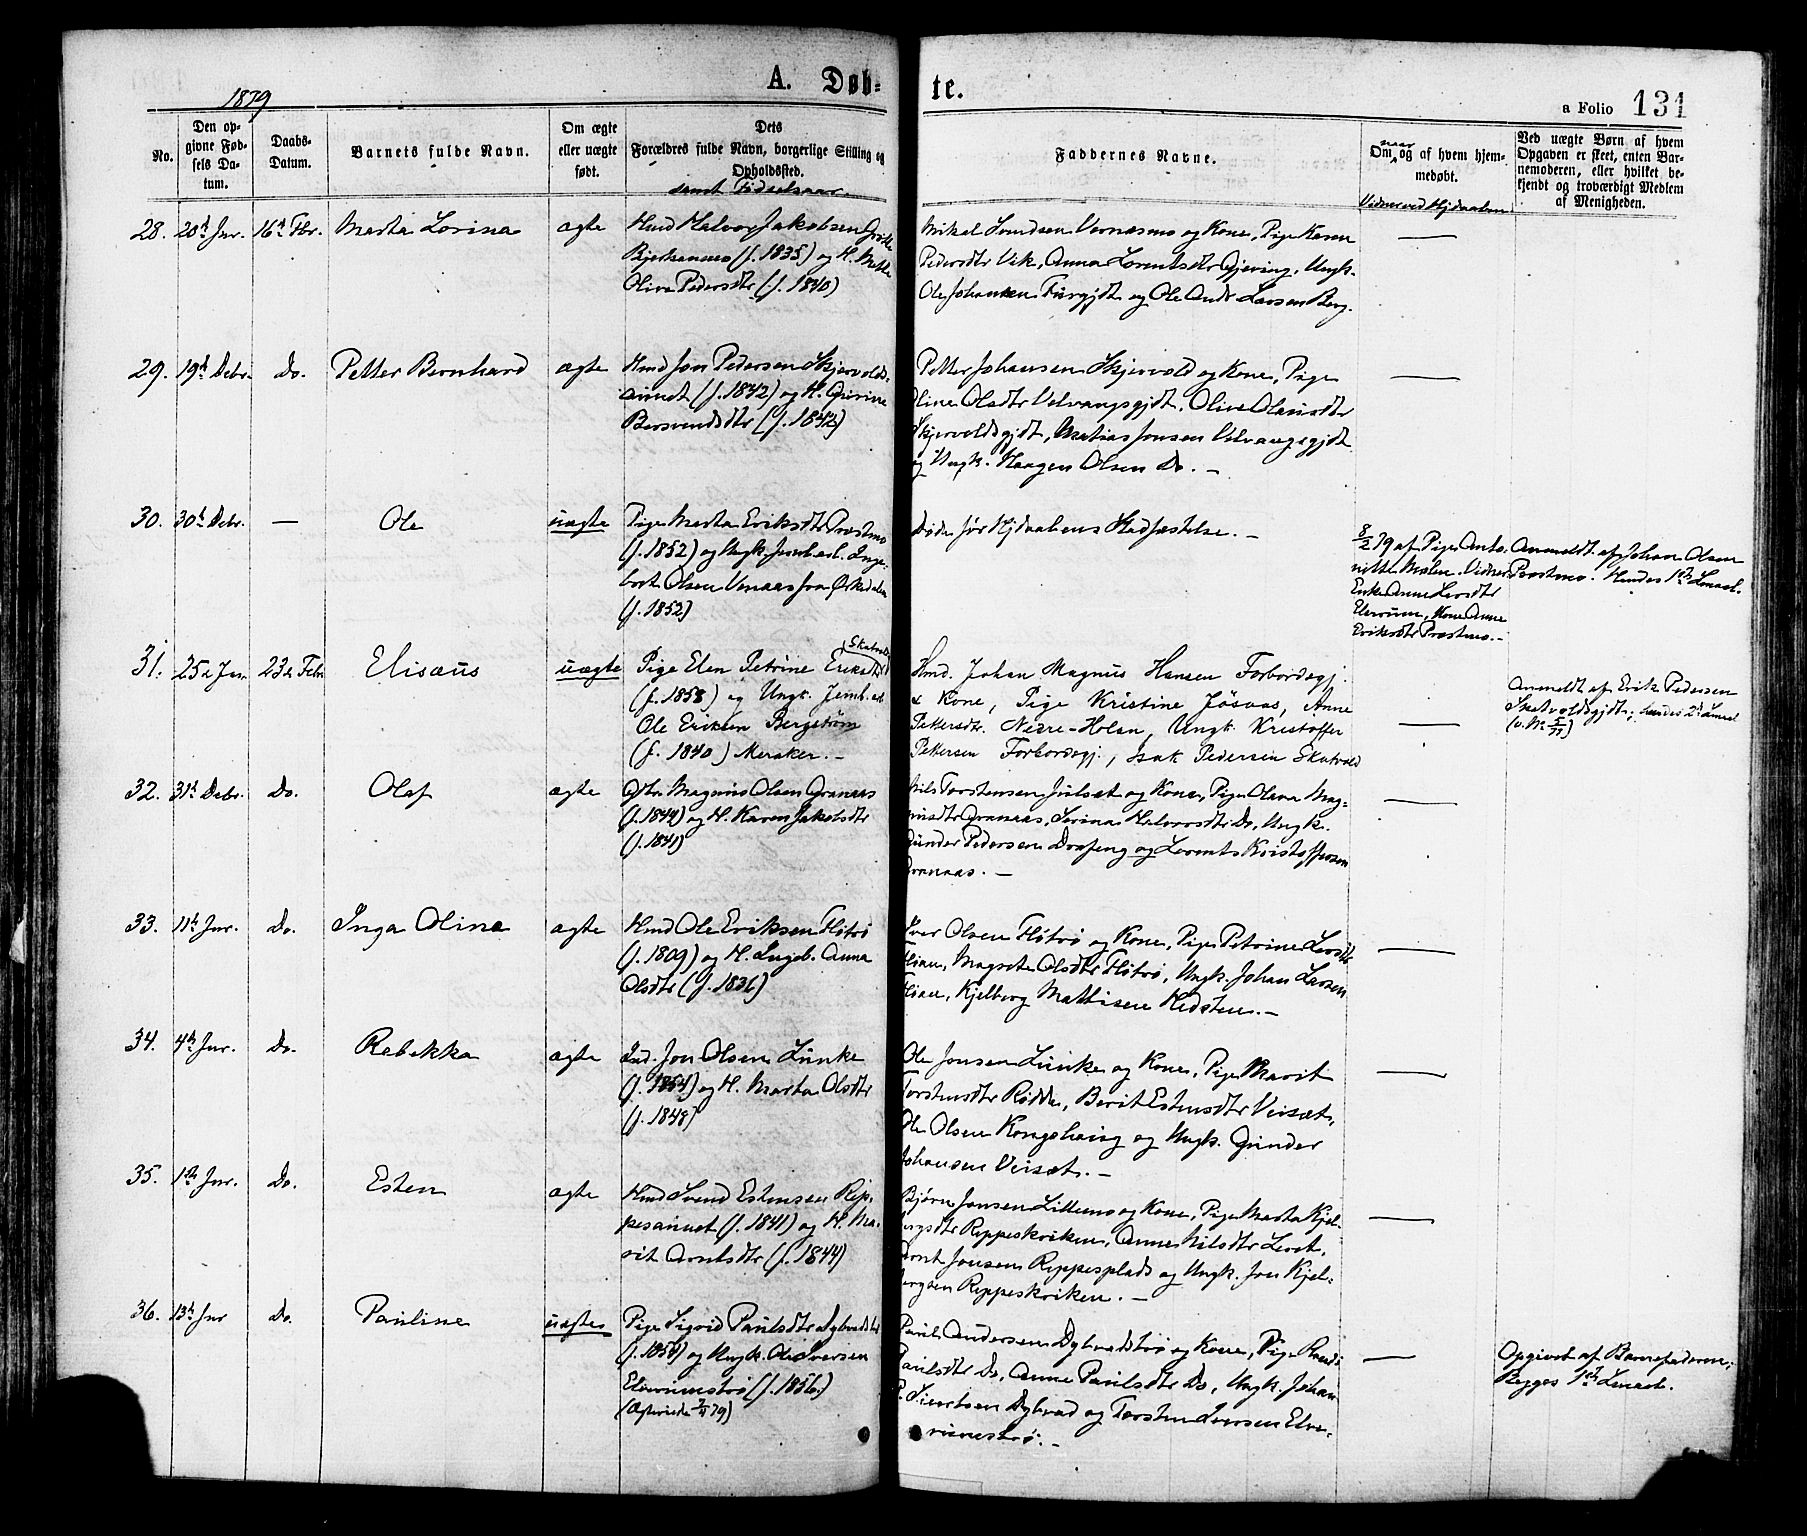 1879
A. Døb-
te.
a Folio 131
No.
Den op-
givne Fød-
sels Da-
tum.
Daabs-
Datum.
Barnets fulde Navn.
Om ægte
eller uægte
født.
Dets
Forældres fulde Navn, borgerlige Stilling og
Opholdssted.
samt Fødselsaar.
Faddernes Navne.
Om naar og af hvem hjem-
medøbt.
Vidner ved Hjdaaben
Ved uægte Børn af hvem
Opgaven er skeet, enten Bar-
nemoderen, eller hvilket be-
kjendt og troværdigt Medlem
af Menigheden.
28. 20d Jnr. 16d Fbr. Marta Lorina ægte
Hmd Halvor Jakobsen
(f. 1835) og H. Mette
Oliva Pedersdtr (f. 1840)
Mikal Vernesmo og Kone, Pige Karen
Pedersdtr Vik, Anna Lorentsdtr Gjeving, Ungk.
Ole Johansen og Ole Andr. Larsen Berg.
—
29. 19d Debr. Do. Petter Bernhard ægte
Hmd Jon Pedersen Skjervolds-
aunet (f. 1842) og H. Gurine
Bersvendsdtr (f. 1842)
Petter Johansen Skjervold og Kone, Pige
Oline Olsdtr Velvangsgjdt, Olive Olausdtr
Skjervoldsgjdt, Matias Jonsen Velvangsgjdt
og Ungk. Haagen Olsen Do. —
—
30. 30d Debr. — Ole uægte
Pige Marta Eriksdtr Præstmo
(f. 1852) og Ungk. Jernb.arb. Inge-
bret Olsen fra Ørkedalen
(f. 1852)
Døde før Hjdaabens Stadfæstelse. —
8/2 79 af Pige Anto-
nette Malen. Vidner
Enke Anne Larsdtr
Elverum, Kone Anne
Eriksdtr Præstmo. —
Anmeldt af Johan Olsen
Præstmo. Hendes 1st Lmaal.
31. 25d Jan. 23d Febr Elisæus uægte
Pige Elen Petrine Eriksdtr Skatvold
(f. 1858) og Ungk. Jernb.arb
Ole Eriksen Bergstrøm
(f. 1840) Meraker. —
Hmd. Johan Magnus Hansen Forbordsgj.
& Kone, Pige Kristine Jøsaas, Anne
Pettersdtr. Nedre-Holan, Ungk. Kristoffer
Pettersen Forbordsgj., Isak Pedersen Skatvold
—
Anmeldt af Erik Pedersen
Skatvoldsgjdt; hendes 2d Lmaal
32. 31d Debr. Do. Olaf ægte
Gbr. Magnus Olsen Granaas
(f. 1844) og H. Karen Jakobsdtr
(f. 1841)
Nils Torstensen Julset og Kone, Pige Olava Mag-
nusdtr Granaas, Serina Halvorsdtr Do, Ungk.
Gunder Pedersen Dræfeng og Lorents Kristoffersen
Granaas. —
—
33. 11d Jnr. Do. Inga Olina ægte
Hmd Ole Eriksen Flotrø
(f. 1809) og H. Ingeb. Anna
Olsdtr (f. 1836)
Iver Olsen Flotrø og Kone, Pige Petrine Larsdtr
Fian, Magrete Olsdtr Flotrø, Ungk. Johan Larsen
Fian, Kjelberg Mathisen Hedsten. —
—
34. 4d Jnr. Do. Rebekka ægte
Ind. Jon Olsen Lunke
(f. 1854) og H. Marta Olsdtr
(f. 1848)
Ole Jonsen Lunke og Kone, Pige Marit
Torstensdtr Rødde, Berit Estensdtr Veiset,
Ole Olsen Kongshaug og Ungk. Gunder
Johansen Veiset. —
—
35. 1st Jnr. Do. Esten ægte
Hmd Svend Estensen Rep-
pesaunet (f. 1841) og H. Ma-
rit Arntsdtr (f. 1844)
Bjørn Jonsen Lillemo og Kone, Pige Marta Kjel-
bergsdtr Reppeskriken, Anne Nilsdtr Leret,
Arnt Jonsen Reppesplads og Ungk. Jon Kjel-
bergsen Reppeskriken. —
—
36. 13d Jnr Do. Pauline uægte
Pige Sigrid Paulsdtr Dybvadstrø
(f. 1854) og Ungk. Ole Iversen
Elverumstrø (f. 1856.)
79)
Paul Andersen Dybvadstrø og Kone, Pige Randi
Paulsdtr Do, Anne Paulsdtr Do, Ungk. Johan
Sivertsen Dybvad og Torsten Iversen Elve-
rumstrø. —
—
Opgivet af Barnefaderen;
Begges 1st Lmaal.